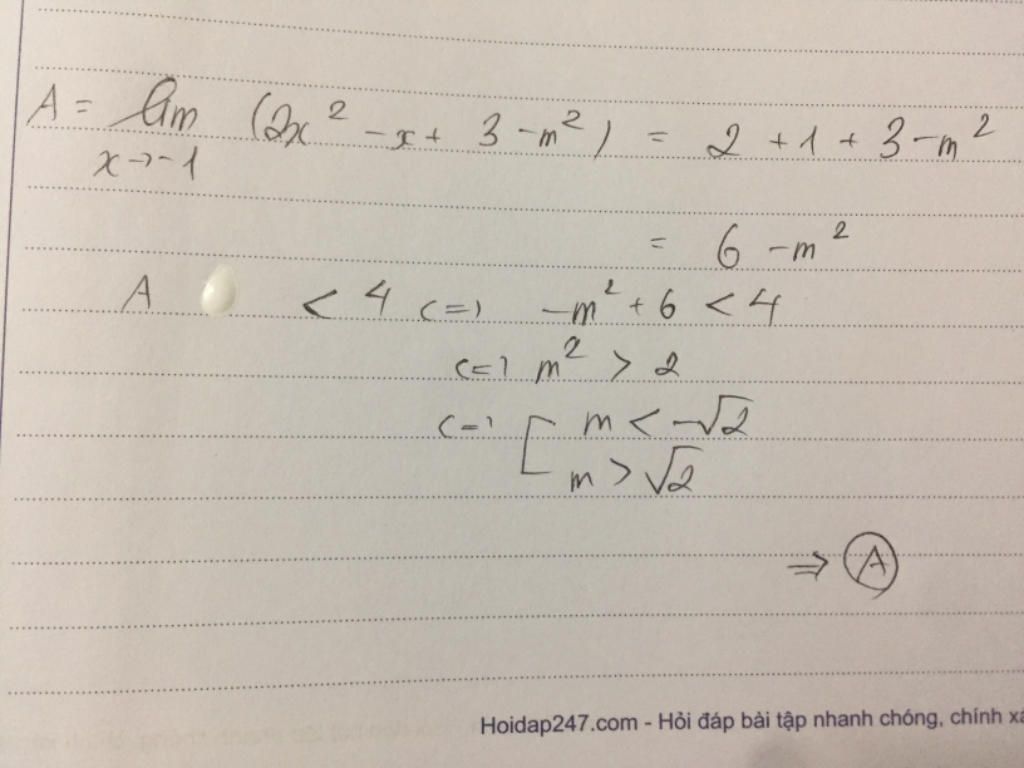 A = lim (2x² - x + 3 - m²) = 2 + 1 + 3 - m²
x → -1
= 6 - m²
A < 4 <=> -m² + 6 < 4
<=> m² > 2
<=> [ m < -√2
m > √2
⇒ A
Hoidap247.com - Hỏi đáp bài tập nhanh chóng, chính